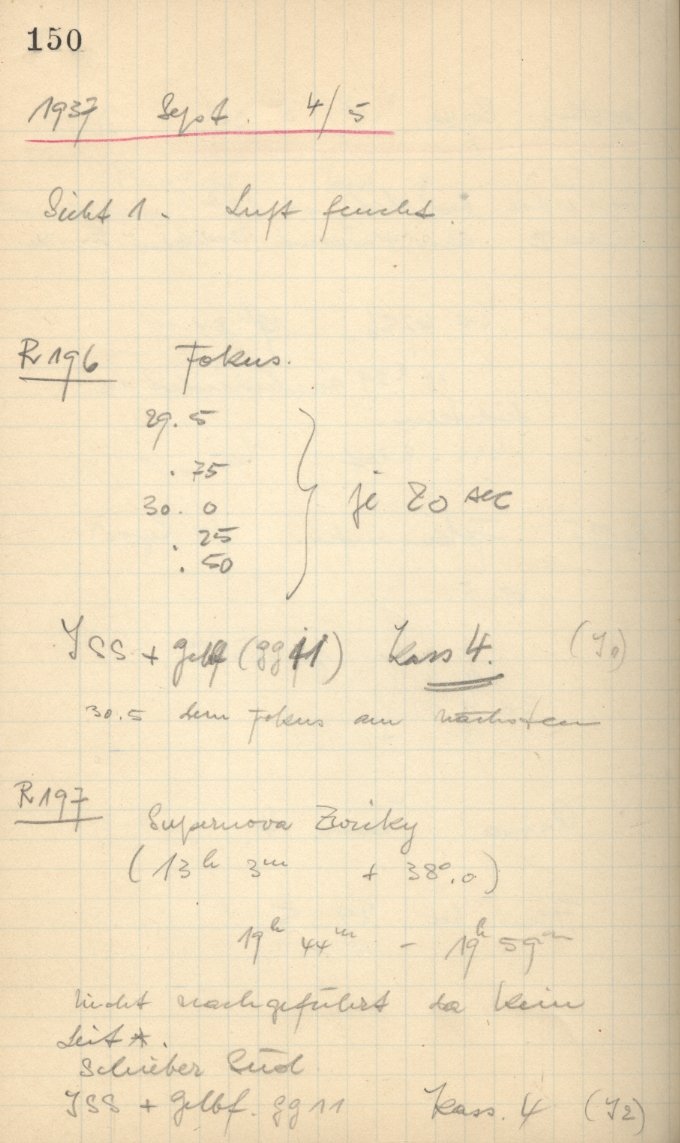 150
1937 Sept. 4/5
Sicht 1. Luft feucht.
R 196 Fokus.
29.5
.75
30.0
.25
.50
je 20 sec
ISS + gelbf (gg 11) Kass 4.
30.5 dem Fokus am nächsten
R 197
Supernova Zwicky
(13h 3m + 38°.0)
19h 44m - 19h 59m
nicht nachgeführt da kein
Leit*.
Schieber Süd
ISS + gelbf. gg 11 Kass. 4 (I2)